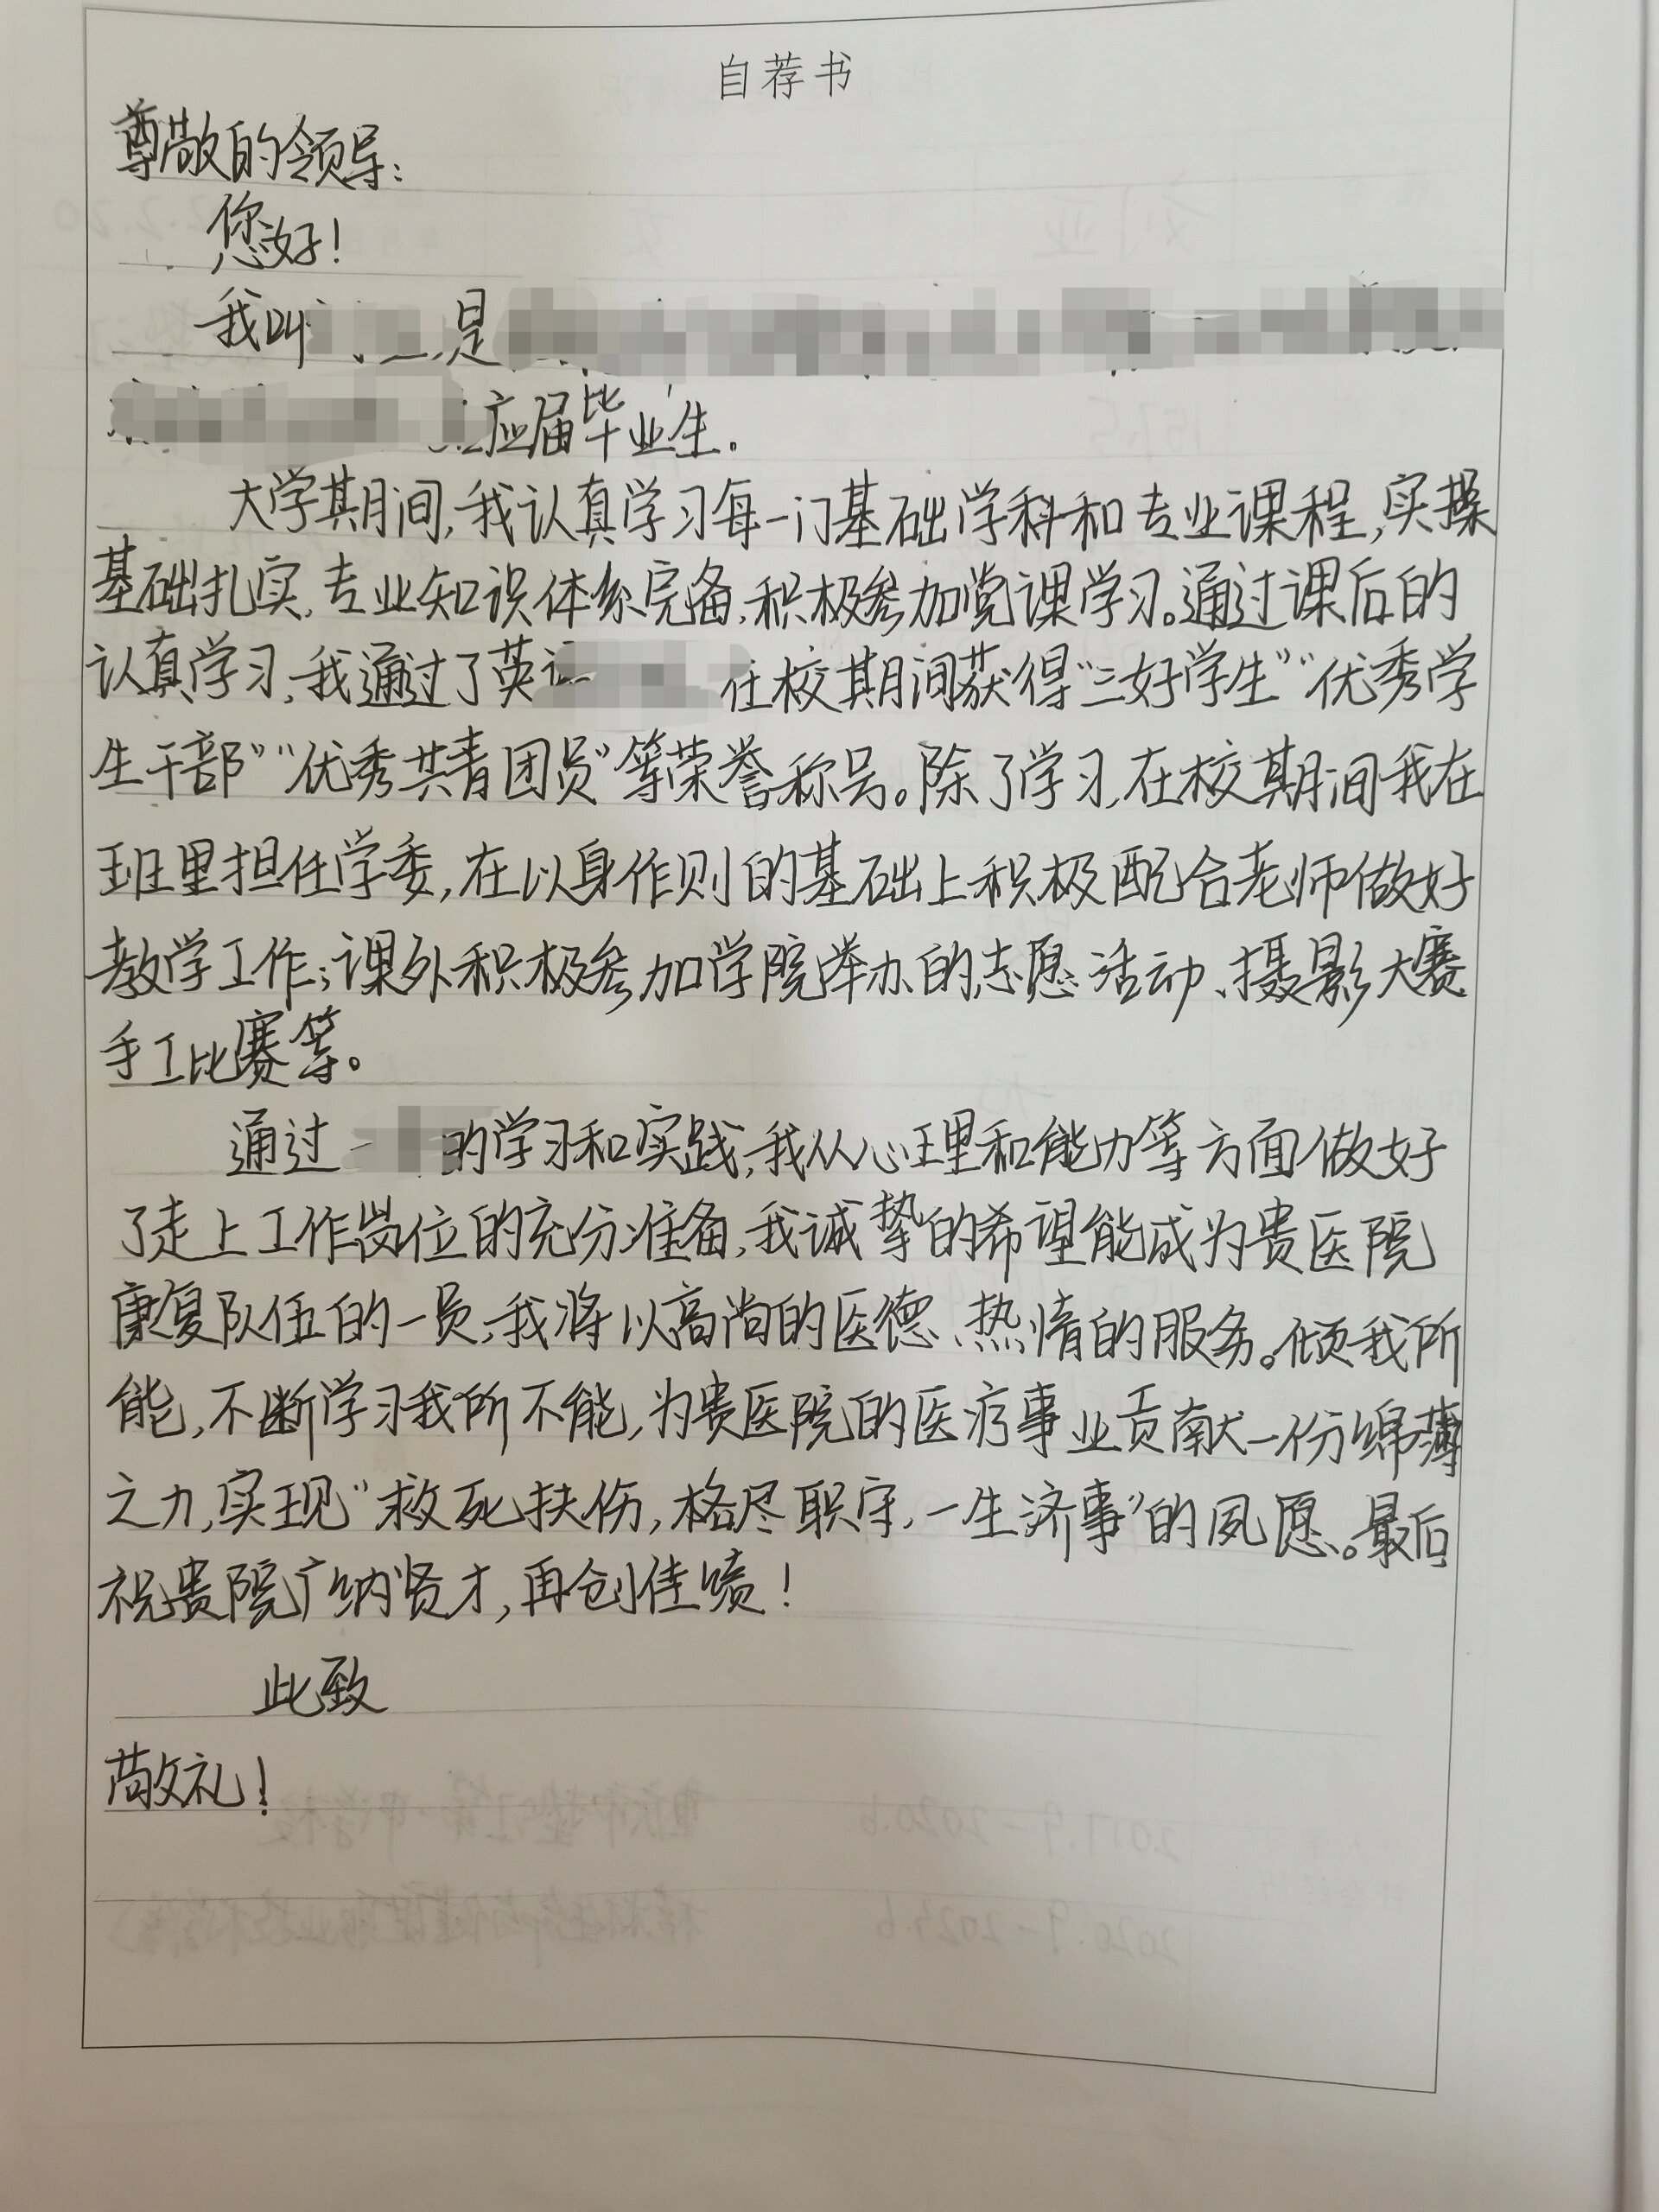 自荐书
尊敬的领导：
您好！
我叫 是
应届毕业生。
大学期间，我认真学习每一门基础学科和专业课程，实操
基础扎实，专业知识体系完备，积极参加党课学习。通过课后的
认真学习，我通过了英 在校期间获得“三好学生”“优秀学
生干部”“优秀共青团员”等荣誉称号。除了学习，在校期间我在
班里担任学委，在以身作则的基础上积极配合老师做好
教学工作；课外积极参加学院举办的志愿活动、摄影大赛
手工比赛等。
通过 的学习和实践，我从心理和能力等方面做好
了走上工作岗位的充分准备，我诚挚的希望能成为贵医院
康复队伍的一员，我将以高尚的医德、热情的服务。倾我所
能，不断学习我所不能，为贵医院的医疗事业贡献一份绵薄
之力，实现“救死扶伤，格尽职守，一生济事”的夙愿。最后
祝贵院广纳贤才，再创佳绩！
此致
敬礼！
2017.9-2020.6
2020.9-2024.6